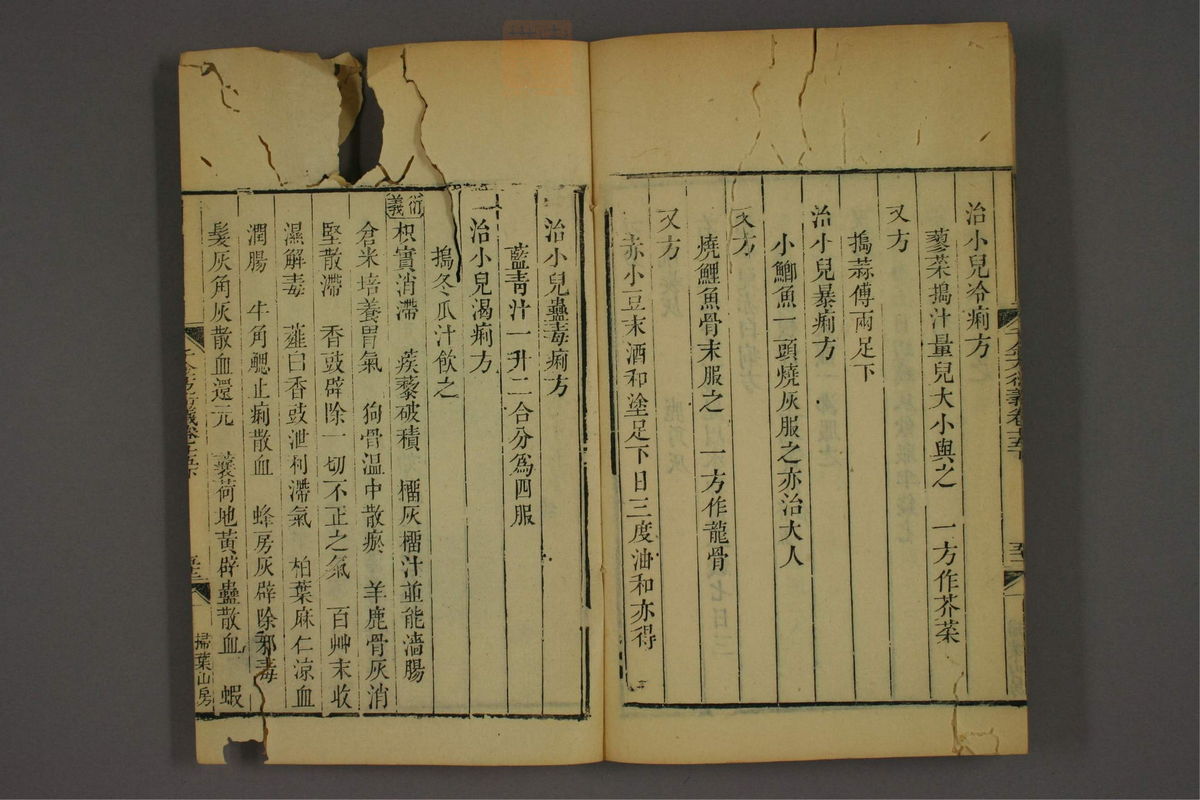 治小兒冷痢方
蓼菜搗汁量兒大小與之 一方作芥菜
又方
搗蒜傅兩足下
治小兒暴痢方
小鯽魚一頭燒灰服之亦治大人
又方
燒鯉魚骨末服之 一方作龍骨
又方
赤小豆末酒和塗足下日三度油和亦得
治小兒蠱毒痢方
藍靑汁一升二合分爲四服
治小兒渴痢方
搗冬瓜汁飮之
衍義
枳實消滯 蒺藜破積 榴灰榴汁並能濇腸
倉米培養胃氣 狗骨溫中散瘀 羊鹿骨灰消
堅散滯 香豉辟除一切不正之氣 百艸末收
濕解毒 薤白香豉泄利滯氣 柏葉麻仁涼血
潤腸 牛角䚡止痢散血 蜂房灰辟除邪毒
髮灰角灰散血還元 蘘荷地黃辟蠱散血 蝦
掃葉山房